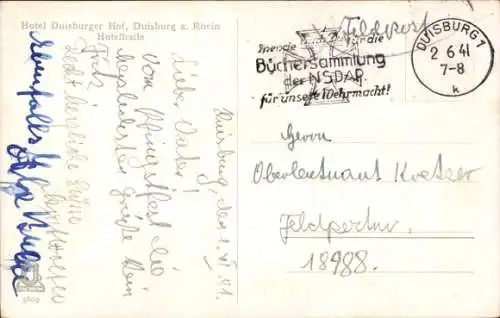 Hotel Duisburger Hof, Duisburg a. Rhein
Hotelhalle
Duisburg, den 1. VI. 41.
Lieber Vater!
Vom Pfingstfest die
herzlichsten Grüße Dein
Fritz
Recht herzliche Grüße
Ebenfalls
Feldpost
Spende für die
Büchersammlung
der NSDAP.
für unsere Wehrmacht!
DUISBURG 1
2.6.41
7-8
k
Herrn
Oberleutnant Kretzer
Feldpostnr.
18988.